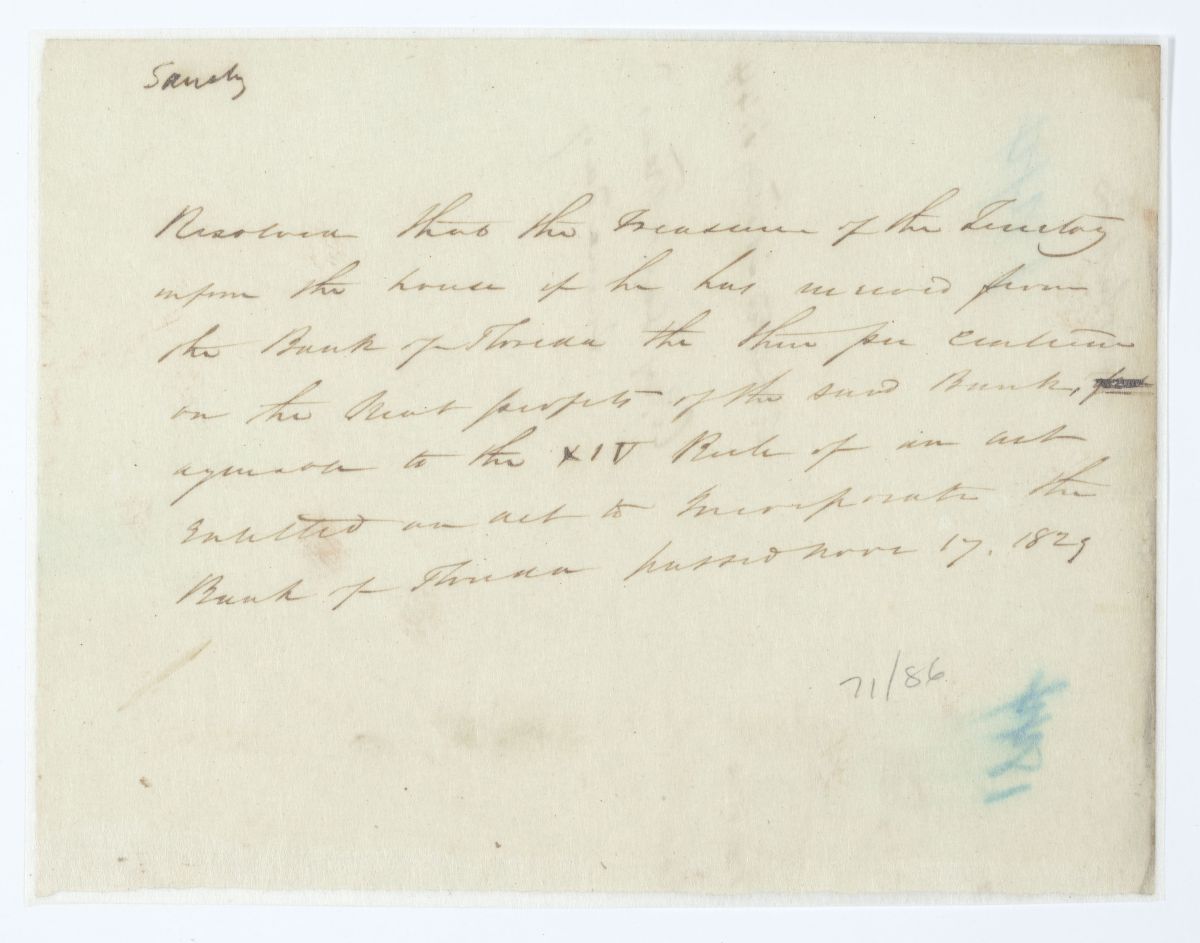 Sanchy
Resolved that the Treasurer of the Territory
inform the house if he has received from
the Bank of Florida the three per centum
on the Neat profits of the said Bank,
agreeable to the XIV Rule of an act
Entitled an act to Incorporate the
Bank of Florida passed Nove 17. 1829
71/86